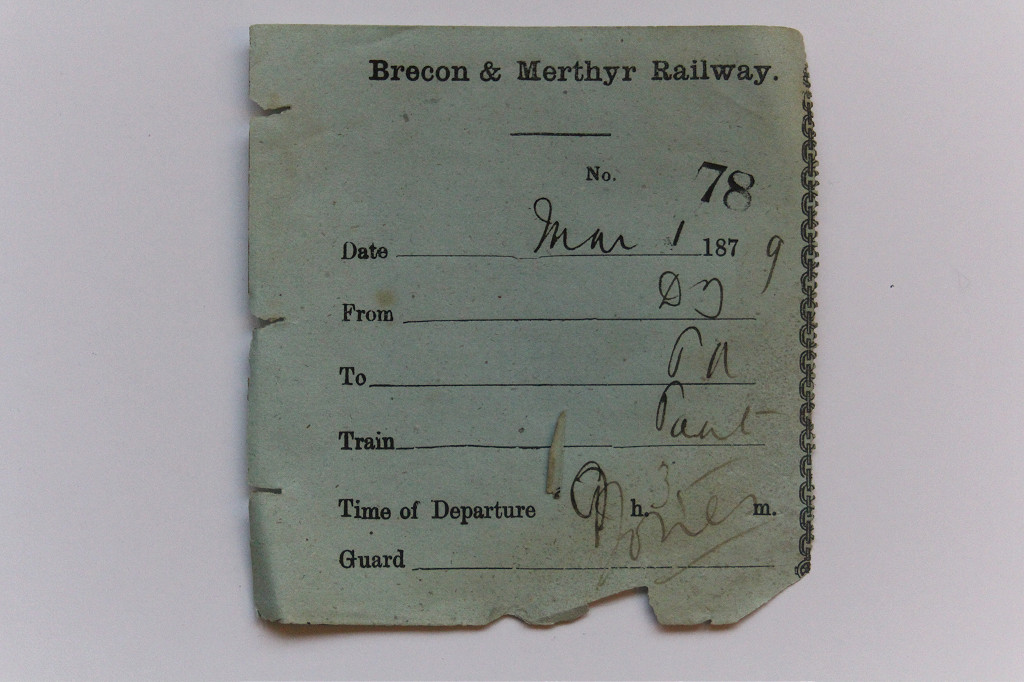 Brecon & Merthyr Railway.
No. 78
Date Mar 1 1879
From
To
Train Pant
Time of Departure 9 h. 3 m.
Guard Jones